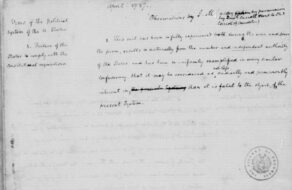 April 1787.
Vices of the Political
System of the U. States
Observations by J. M.
1. Failure of the
States to comply with the
Constitutional requisitions.
1. This evil has been so fully experienced both during the war and since
the peace, results so naturally from the number and independent authority
of the States and has been so uniformly exemplified in every similar
Confederacy, that it may be considered as not less radically and permanently
inherent in than it is fatal to the object of the
present System.